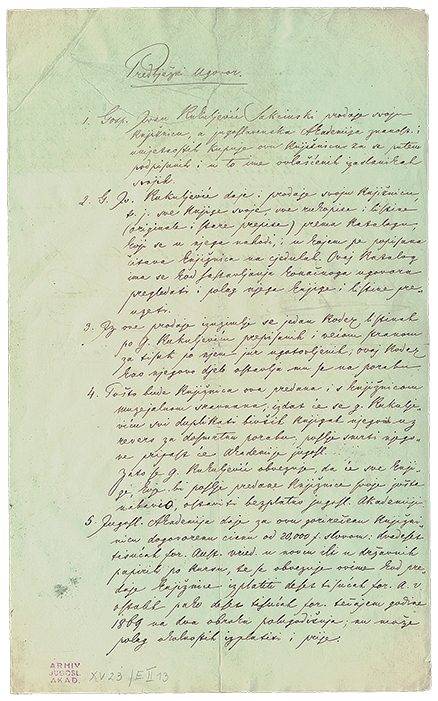 Predbježni Ugovor.
1. Gosp. Ivan Kukuljević Sakcinski prodaje svoju
knjižnicu, a jugoslavenska Akademija znanosti i
umjetnosti kupuje ovu knjižnicu za se putem
podpisanih i u to ime ovlašćenih zastupnikah
svojih.
2. G. Iv. Kukuljević daje i prodaje svoju knjižnicu,
t. j. sve knjige svoje, sve rukopise i listine
(originale i stare prepise) prema katalogu,
koji se u njega nahodi, i u kojem je popisana
čitava knjižnica na cjedulah. Ovaj Katalog
ima se kod sastavljanja konačnoga ugovora
pregledati i polag njega knjige i listine pre-
uzeti.
3. Iz ove prodaje izuzimlje se jedan Kodex listinah
po g. Kukuljeviću prepisanih i većom stranom
za tisak po njem jur ugotovljenih; ovaj Kodex
kao njegovo djelo ostavlja mu se na porabu.
4. Pošto bude knjižnica ova predana i s knjižnicom
muzejalnom sravnana, izdat će se g. Kukulje-
viću svi duplikati bivših knjigah njegovih uz
revers za dosmrtnu porabu, poslje smrti njego-
ve pripast će Akademije jugosl.
Zato se g. Kukuljević obvezuje, da će sve knji-
ge, koje bi poslje predane knjižnice svoje jošte
nabavio, ostaviti bezplatno jugosl. Akademiji.
5. Jugosl. Akademija daje za ovu gorirečenu knjižni-
cu dogovorenu cienu od 20,000 f. slovom: dvadeset
tisućah for. Aust. vried. u novcu ili u državnih
papirih po kursu, te se obvezuje ovime kod pre-
daje knjižnice izplatiti deset tisućah for. a. v.
ostalih pako deset tisućah for. tečajem godine
1869 na dva obroka polugodišnja; nu može
polag okolnostih izplatiti i prije.
ARHIV
JUGOSL.
AKAD.
XV 23 / E II 13